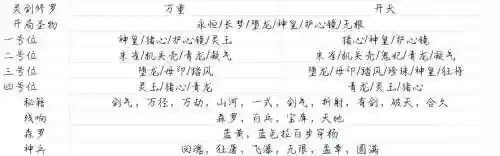 灵剑修罗 万重 开天
开局圣物 永恒/长梦/堕龙/神皇/护心镜/无根
一号位 神皇/猪心/护心镜/灵王 猪心/神皇/护心镜
二号位 朱雀/机关壳/青龙/凝气 朱雀/机关壳/鬼妃/青龙/凝气
三号位 堕龙/母印/踏风 堕龙/母印/踏风/珍珠/神皇/狂将
四号位 灵王/猪心/青龙 青龙/灵王/猪心
秘籍 剑气，万径，万劫，山河，一式，剑气，折射，有剑，破天，合久
残响 森罗，百兵，宝库，天地
森罗 蓝黄，蓝色拉百步穿杨
神兵 回魂，狂屠，飞瀑，无限，孟章，圆满